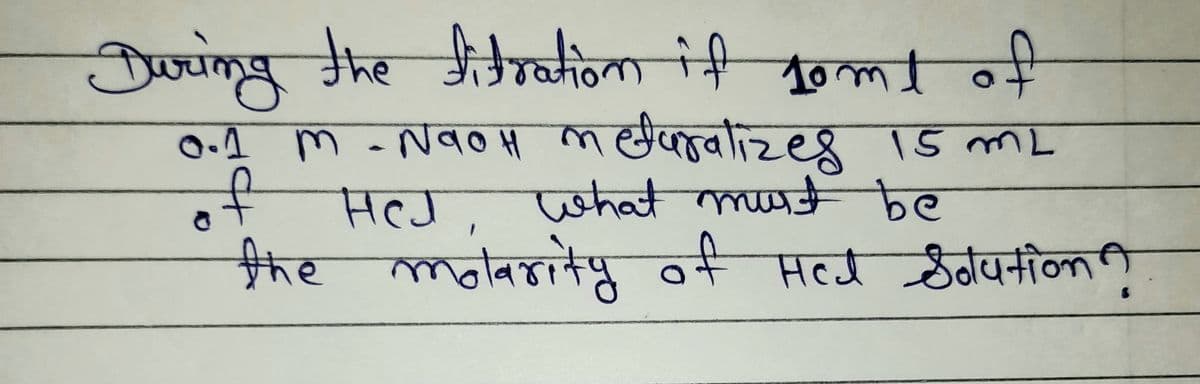 During the titration if 10 ml of
0.1 M - NaOH neturalizes 15 mL
of HCl, what must be
the molarity of HCl Solution?